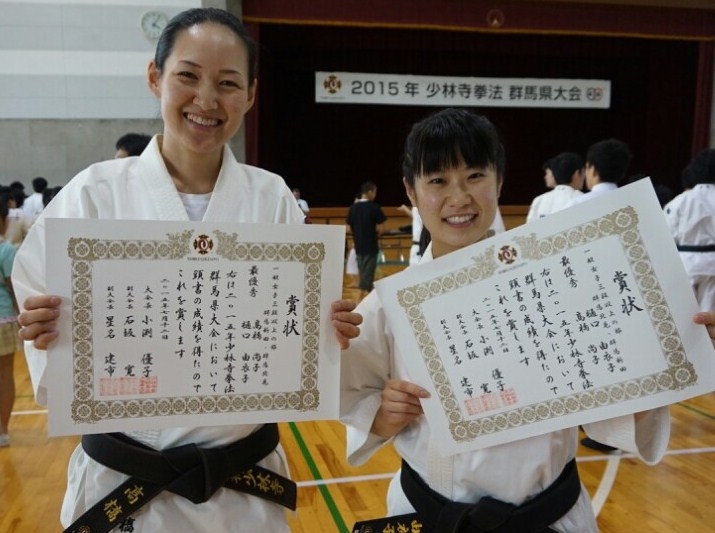 2015年 少林寺拳法 群馬県大会
賞状
一般女子三段以上の部
最優秀
高橋 尚子
樋口 由衣子
右は二〇一五年少林寺拳法
群馬県大会において
頭書の成績を得たので
これを賞します
二〇一五年七月十二日
大会長 小渕 優子
副大会長 石坂 寛
副大会長 星名 建市
賞状
一般女子三段以上の部
最優秀
高橋 尚子
樋口 由衣子
右は二〇一五年少林寺拳法
群馬県大会において
頭書の成績を得たので
これを賞します
二〇一五年七月十二日
大会長 小渕 優子
副大会長 石坂 寛
副大会長 星名 建市
高橋